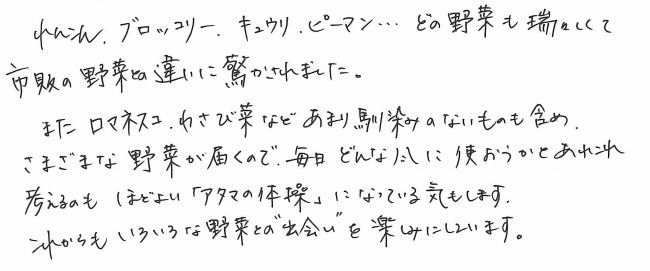 れんこん、ブロッコリー、キュウリ、ピーマン… どの野菜も瑞々しくて
市販の野菜との違いに驚かされました。
また ロマネスコ、わさび菜など あまり馴染みのないものも含め、
さまざまな野菜が届くので、毎日 どんな風に使おうかとあれこれ
考えるのも ほどよい「アタマの体操」になっている気もします。
これからも いろいろな野菜との“出会い”を楽しみにしています。